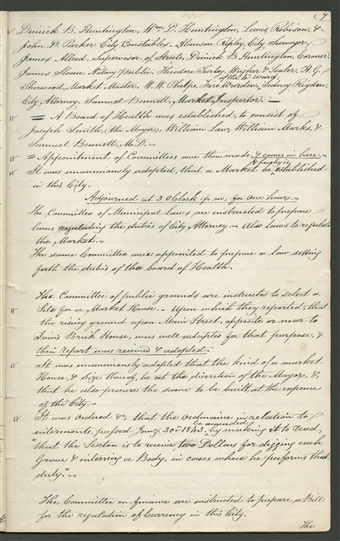 7
" Dimick B. Huntington, Wm. D. Huntington, Lewis Robison, &
John D. Parker City Constables, Alanson Ripley City Surveyor,
James Allred, Supervisor of Streets, Dimick B. Huntington Coroner
James Sloan, Notary public. Theodore Turley, Weigher & Sealer, H. G.
of the 4th ward,
Sherwood, Market Master, W. W. Phelps, Fire Warden, Sidney Rigdon,
City Attorney. Samuel Bennett, Market Inspector.—
" = A Board of Health was established, to consist of
Joseph Smith, (the Mayor), William Law, William Marks, &
Samuel Bennett, M.D.—
" = Appointment of Committees are then made, & comes in here.—
" It was unanimously adopted, that a Market be established
in this City.
Adjourned at 3 o'Clock p. m. for One hour.—
The Committee of Municipal Laws are instructed to prepare
laws regulating the duties of City Attorney.— Also Laws to regulate
the Market.—
The same Committee were appointed to prepare a law setting
forth the duties of the board of Health.
The Committee of public grounds are instructed to select a
" Site for a Market House.— Upon which they reported, that
the rising ground upon Main Street, opposite or near to
Brick House, was well adapted for that purpose, &
their report was received & adopted.—
" It was unanimously adopted that the kind of a market
House, & Size thereof, be at the discretion of the Mayor, &
that he also procure the same to be built, at the expense
of the City.—
" It was Ordered &c. that the Ordinance in relation to
be amended
interments, passed Jany. 30th 1843, by making it to read,
"that the Sexton is to receive two Dollars for digging each
Grave & interring a Body, in cases where he performs that
duty."—
The Committee on finance are instructed to prepare a Bill
for the regulation of Currency in this City.
The